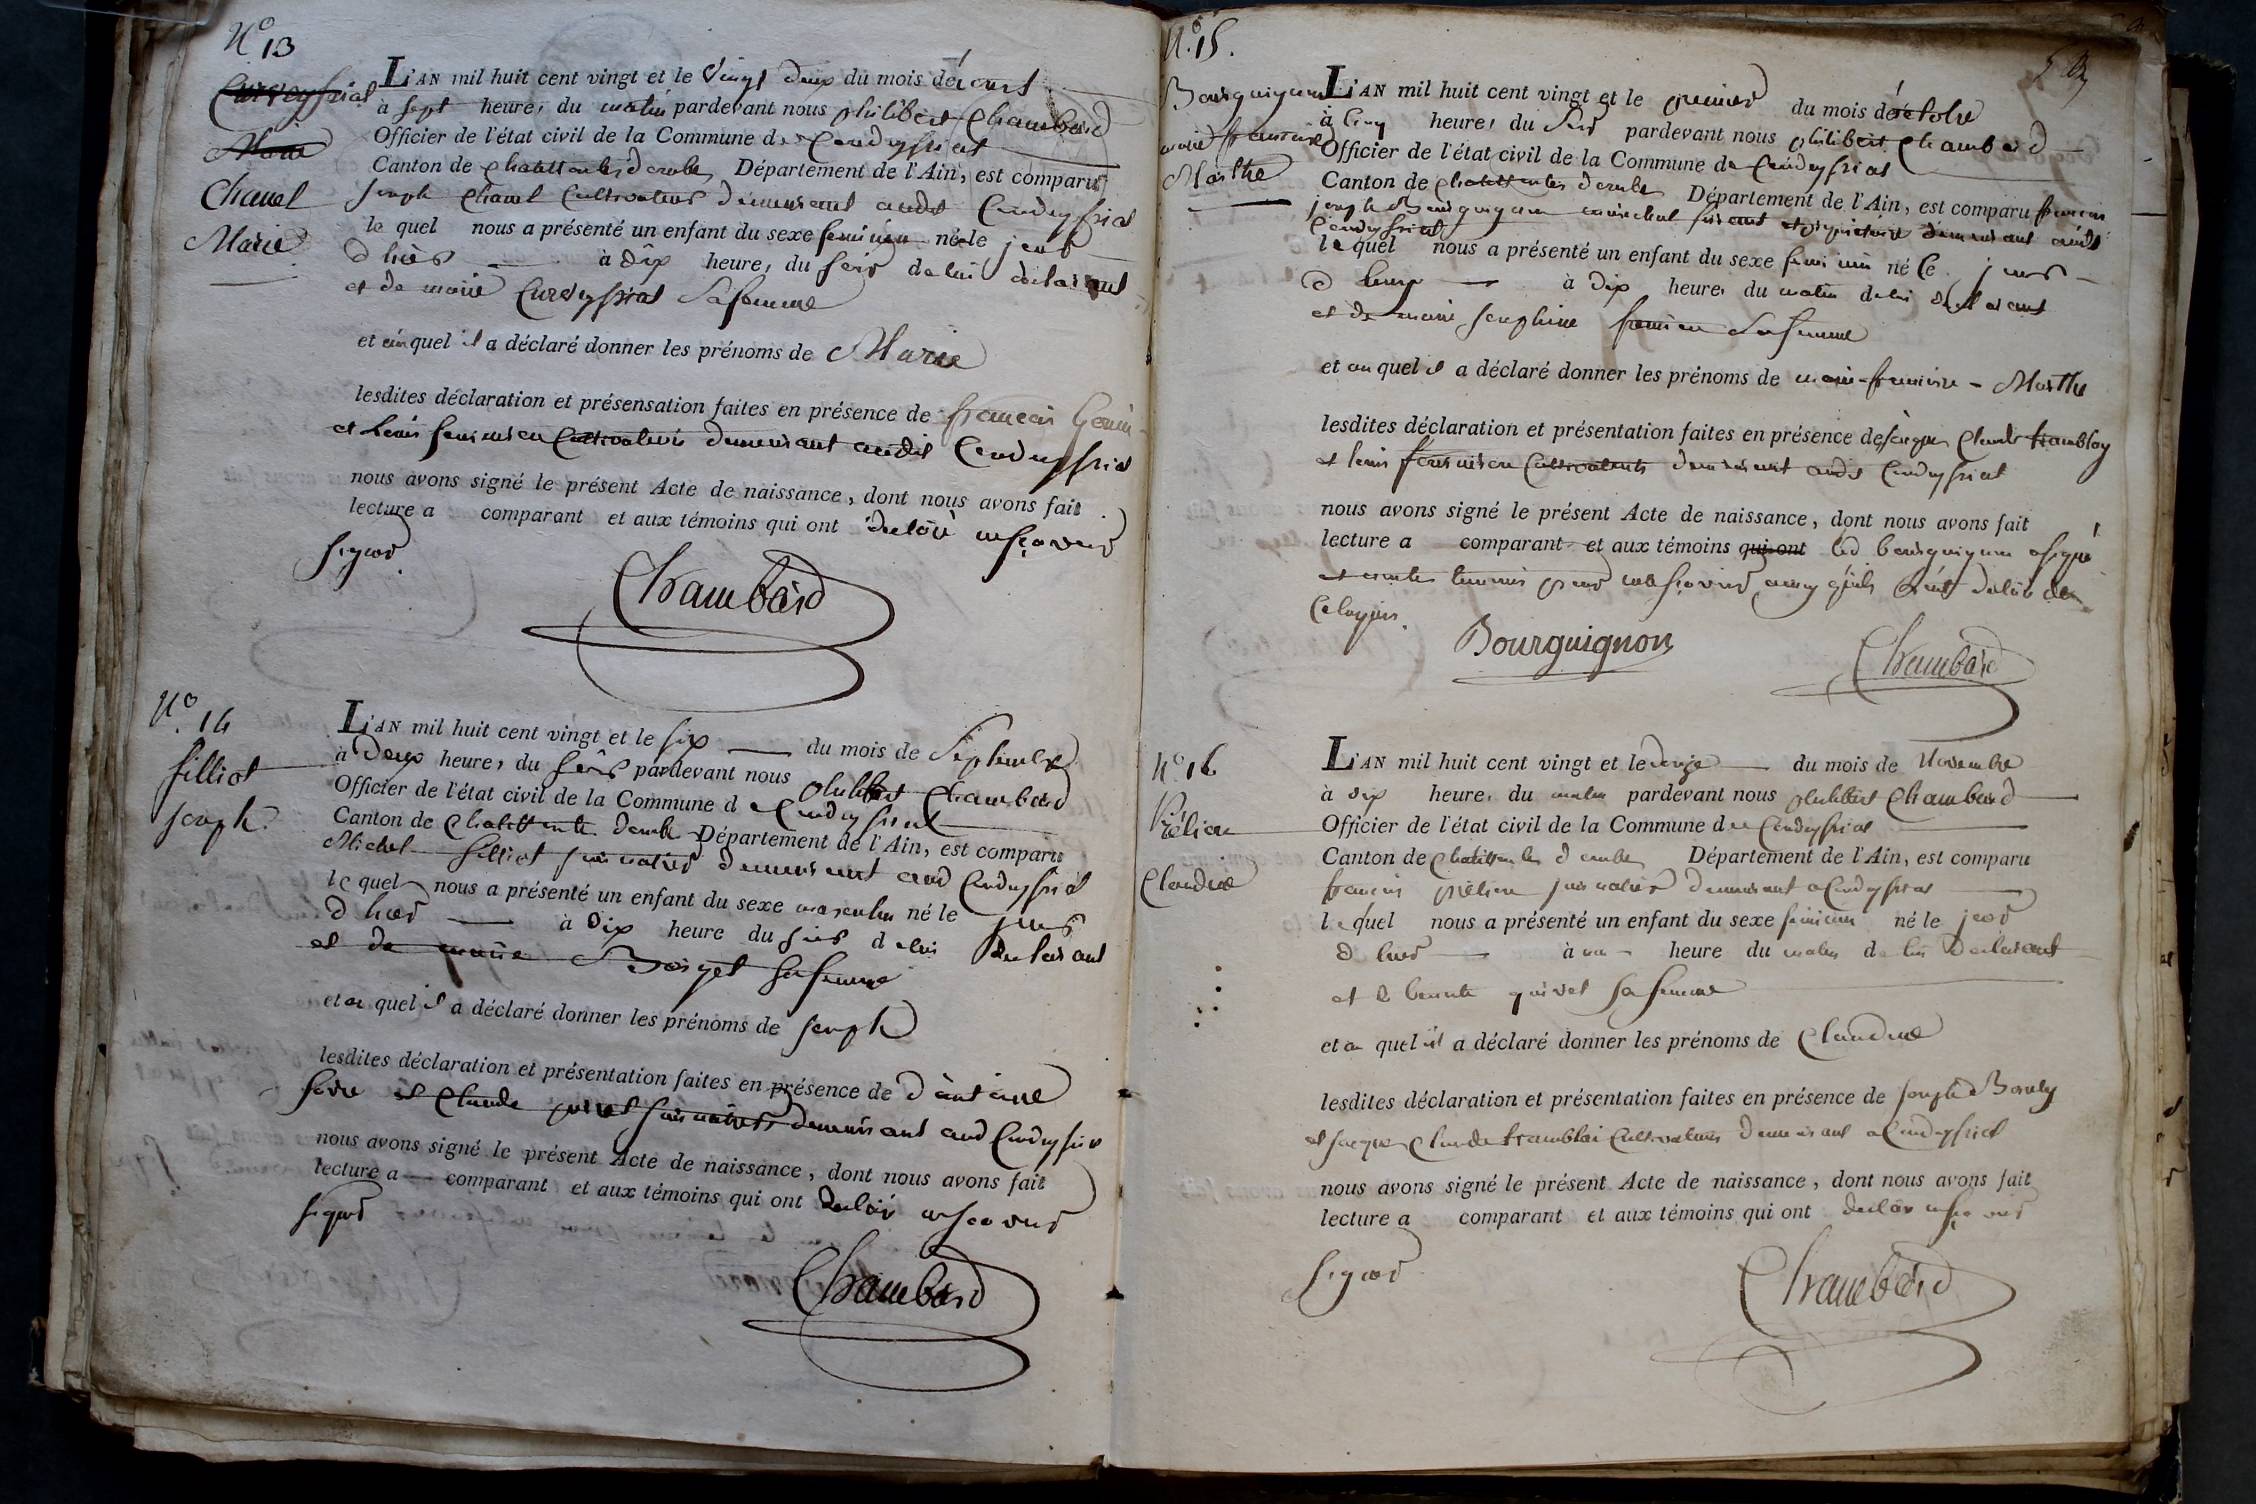 N° 13
Curveyssiat
Marie
Chanel
Marie
L'AN mil huit cent vingt et le Vingt deux du mois de
à sept heures du matin pardevant nous philibert Chambard
Officier de l'état civil de la Commune de Condeyssiat
Canton de Département de l'Ain, est comparu
joseph Chanel Cultivateur demeurant audit Condeyssiat
le quel nous a présenté un enfant du sexe feminin née le jour
d'hier à dix heures du soir de lui déclarant
et de marie Curveyssiat sa femme
et auquel il a déclaré donner les prénoms de Marie
lesdites déclaration et présensation faites en présence de françois
et Cultivateurs demeurant audit Condeyssiat
nous avons signé le présent Acte de naissance, dont nous avons fait
lecture a comparant et aux témoins qui ont déclaré ne sçavoir
signer.
Chambard
N° 14
filliot
joseph.
L'AN mil huit cent vingt et le six du mois de Septembre
à Deux heures du soir pardevant nous philibert Chambard
Officier de l'état civil de la Commune de Condeyssiat
Canton de Département de l'Ain, est comparu
Michel filliot journalier demeurant aud Condeyssiat
le quel nous a présenté un enfant du sexe masculin né le jour
d'hier à Dix heure du soir de lui déclarant
et de marie sa femme
et au quel il a déclaré donner les prénoms de joseph
lesdites déclaration et présentation faites en présence de d'antoine
et Claude journaliers demeurant aud Condeyssiat
nous avons signé le présent Acte de naissance, dont nous avons fait
lecture a comparant et aux témoins qui ont déclaré ne sçavoir
signer
Chambard
N° 15.
Bourguignon
marie françoise
Marthe
L'AN mil huit cent vingt et le premier du mois d'octobre
à Cinq heures du soir pardevant nous philibert Chambard
Officier de l'état civil de la Commune de Condeyssiat
Canton de Département de l'Ain, est comparu françois
joseph Bourguignon marechal demeurant audit
Condeyssiat
le quel nous a présenté un enfant du sexe feminin né Ce jour
à dix heures du matin de lui déclarant
et de marie josephine sa femme
et au quel il a déclaré donner les prénoms de marie-françoise - Marthe
lesdites déclaration et présentation faites en présence de jacques Claude tramblay
et Cultivateurs demeurant audit Condeyssiat
nous avons signé le présent Acte de naissance, dont nous avons fait
lecture a comparant et aux témoins qui ont led bourguignon a signé
et non les temoins pour ne sçavoir ainsy qu'ils l'ont déclaré de
Bourguignon
Chambard
N° 16
Prélion
Claudine
L'AN mil huit cent vingt et le du mois de Novembre
à dix heure, du matin pardevant nous philibert Chambard
Officier de l'état civil de la Commune de Condeyssiat
Canton de Département de l'Ain, est comparu
françois journalier demeurant a Condeyssiat
lequel nous a présenté un enfant du sexe feminin né le jour
d'hier à une heure du matin de lui Déclarant
et de benoite sa femme
et au quel il a déclaré donner les prénoms de Claudine
lesdites déclaration et présentation faites en présence de joseph
et jacques Claude tramblai Cultivateurs demeurant a Condeyssiat
nous avons signé le présent Acte de naissance, dont nous avons fait
lecture a comparant et aux témoins qui ont déclaré ne sçavoir
signer
Chambard